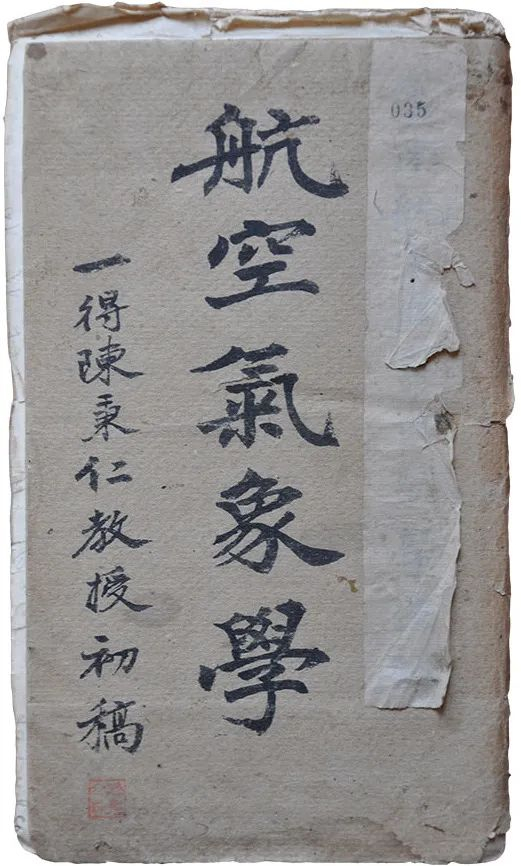 035
航空氣象學
一得陳秉仁教授初稿